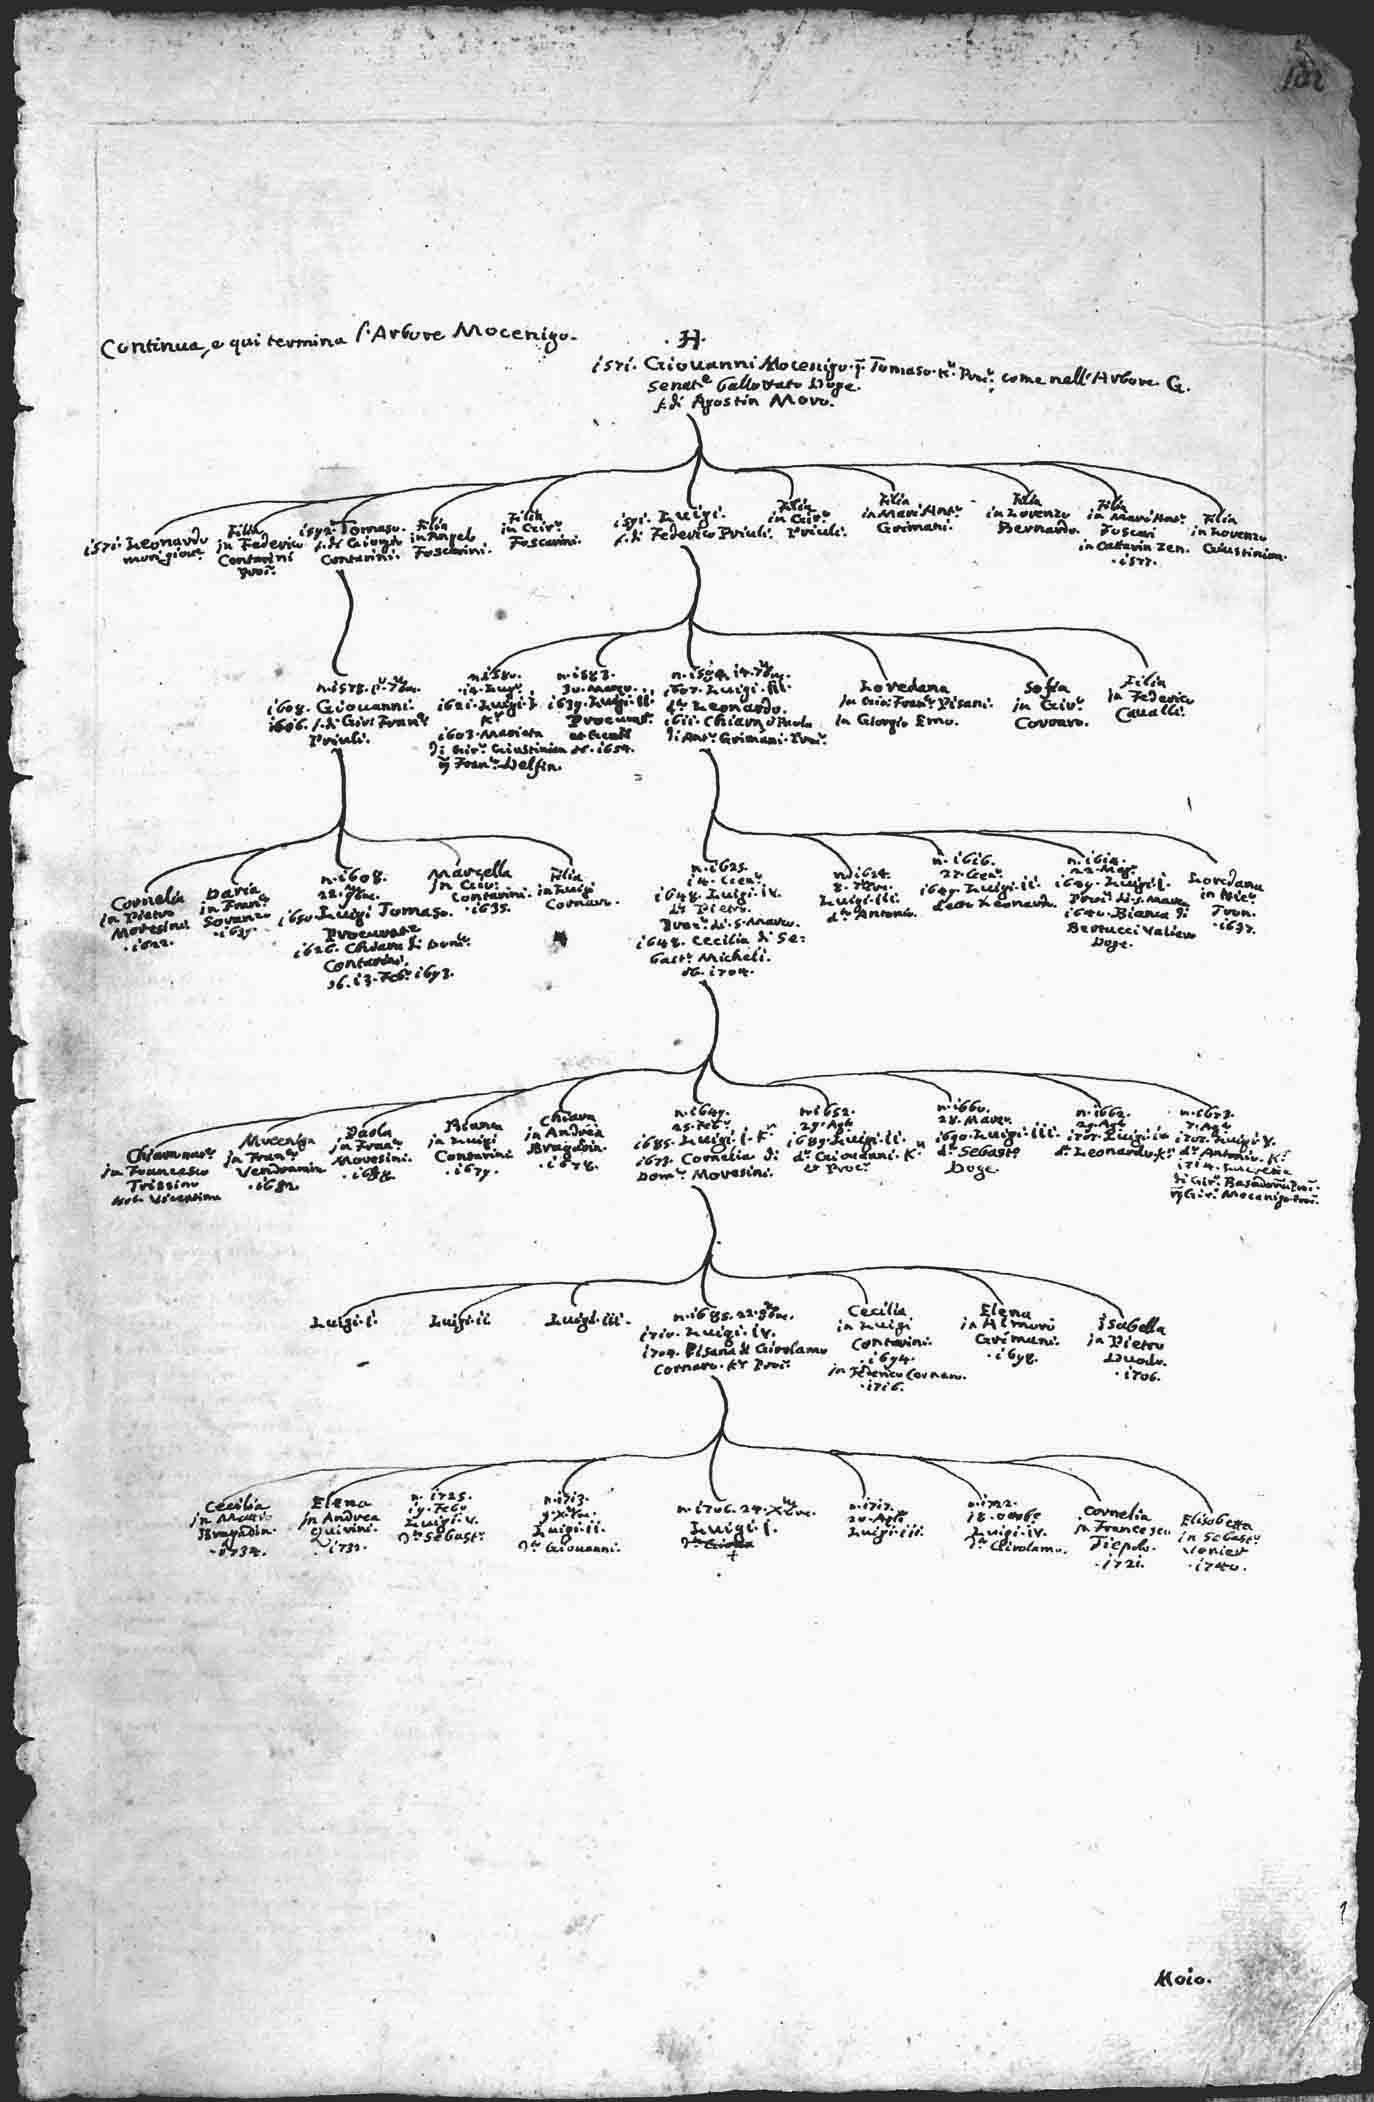 102
Continua, e qui termina l'Arbore Mocenigo.
.H.
1571. Giovanni Mocenigo q. Tomaso Kr. Procr. come nell'Arbore G.
Senatre ballottato Doge.
f. di Agostin Moro.
1571. Leonardo
morì giovne
Filia
in Federico
Contarini
Procr.
1592. Tomaso.
f. di Giorgio
Contarini.
Filia
in Angelo
Foscarini.
Filia
in Girmo
Foscarini.
1591. Luigi.
f. di Federico Priuli.
Filia
in Girmo
Priuli.
Filia
in Marc'Anto
Grimani.
Filia
in Lorenzo
Bernardo.
Filia
in Marc'Anto
Foscari
in Catarin Zen.
.1577.
Filia
in Lorenzo
Giustinian.
n. 1578. 7bre.
1608. Giovanni.
1606. f. di Girl Franco
Priuli.
n. 1580.
14. Lugo
1621. Luigi I.
Kr
1603. Marieta
di Girmo Giustinian
Franco Delfin.
n. 1583.
30. Marzo.
1639. Luigi II.
Procurr.
ob. 1654.
n. 1584. 14. 7bre.
1607. Luigi III.
do Leonardo.
1611. Chiara Paola
di Anto Grimani Procr.
Loredana
in Franco Pisani.
in Giorgio Emo.
Sofia
in Girmo
Corraro.
Filia
in Federico
Cavalli.
Cornelia
in Pietro
Moresini
.1622.
Daria
in Franco
Soranzo
n. 1608.
22. 7bre.
1650. Luigi Tomaso.
Procurate
1626. Chiara di Domco
Contarini.
ob. 13. Febo 1693.
Marcella
in Girmo
Contarini.
.1635.
Filia
in Luigi
Cornaro.
n. 1625.
14. Geno
1648. Luigi IV.
do Pietro.
Procr. di S. Marco.
1648. Cecilia di Se:
basto Micheli.
ob. 1704.
n. 1624.
8. 7bre.
Luigi III.
do Antonio.
n. 1616.
27. Geno
1649. Luigi II.
Leonardo.
n. 1614.
22. Mago
Luigi I.
Procr di S. Marco
1640. Bianca di
Bertucci Valiero
Doge.
Loredana
in Nicò
Tron.
.1637.
in Francesco
Trissino
Nob. Vicentino
Mocenigo
in Franco
Vendramin
.1682.
Paola
in Franco
Moresini.
Biana
in Luigi
Contarini
.1679.
Chiara
in Andrea
Bragadin.
.1678.
n. 1649.
25. Febo
1685. Luigi I. Kr
1673. Cornelia di
Domco Moresini.
n. 1652.
29. Agto
1689. Luigi II.
do Giovanni. Kr
et Procr.
n. 1660.
28. Marzo
1690. Luigi III.
do Sebasto
Doge.
n. 1662.
29. Agto
1707. Luigi IV
do Leonardo. Kr
7. Agto
Luigi V.
do Antonio. Kr
1714. Lucretia
di Girmo Basadona Procr.
Girmo Mocenigo Procr.
Luigi I.
Luigi II.
Luigi III.
n. 1685. 22. 9bre.
1710. Luigi IV.
1704. Pisana di Girolamo
Cornaro. Kr Procr.
Cecilia
in Luigi
Contarini.
.1694.
in Federico Cornaro.
.1716.
Elena
in Almorò
Grimani.
.1698.
Isabella
in Pietro
Duodo.
.1706.
Cecilia
in
Bragadin.
.1734.
Elena
in Andrea
Quirini.
.1732.
n. 1725.
19. Febo
Luigi V.
do Sebasto
n. 1713.
9. Xbre.
Luigi II.
do Giovanni.
n. 1706. 24. Xbre.
Luigi I.
n. 1717.
20. Aple
Luigi III.
n. 1722.
18. Ottobe
Luigi IV.
do Girolamo.
Cornelia
in Francesco
Tiepolo.
.1721.
Elisabetta
in Sebasto
Venier
.1740.
Moio.